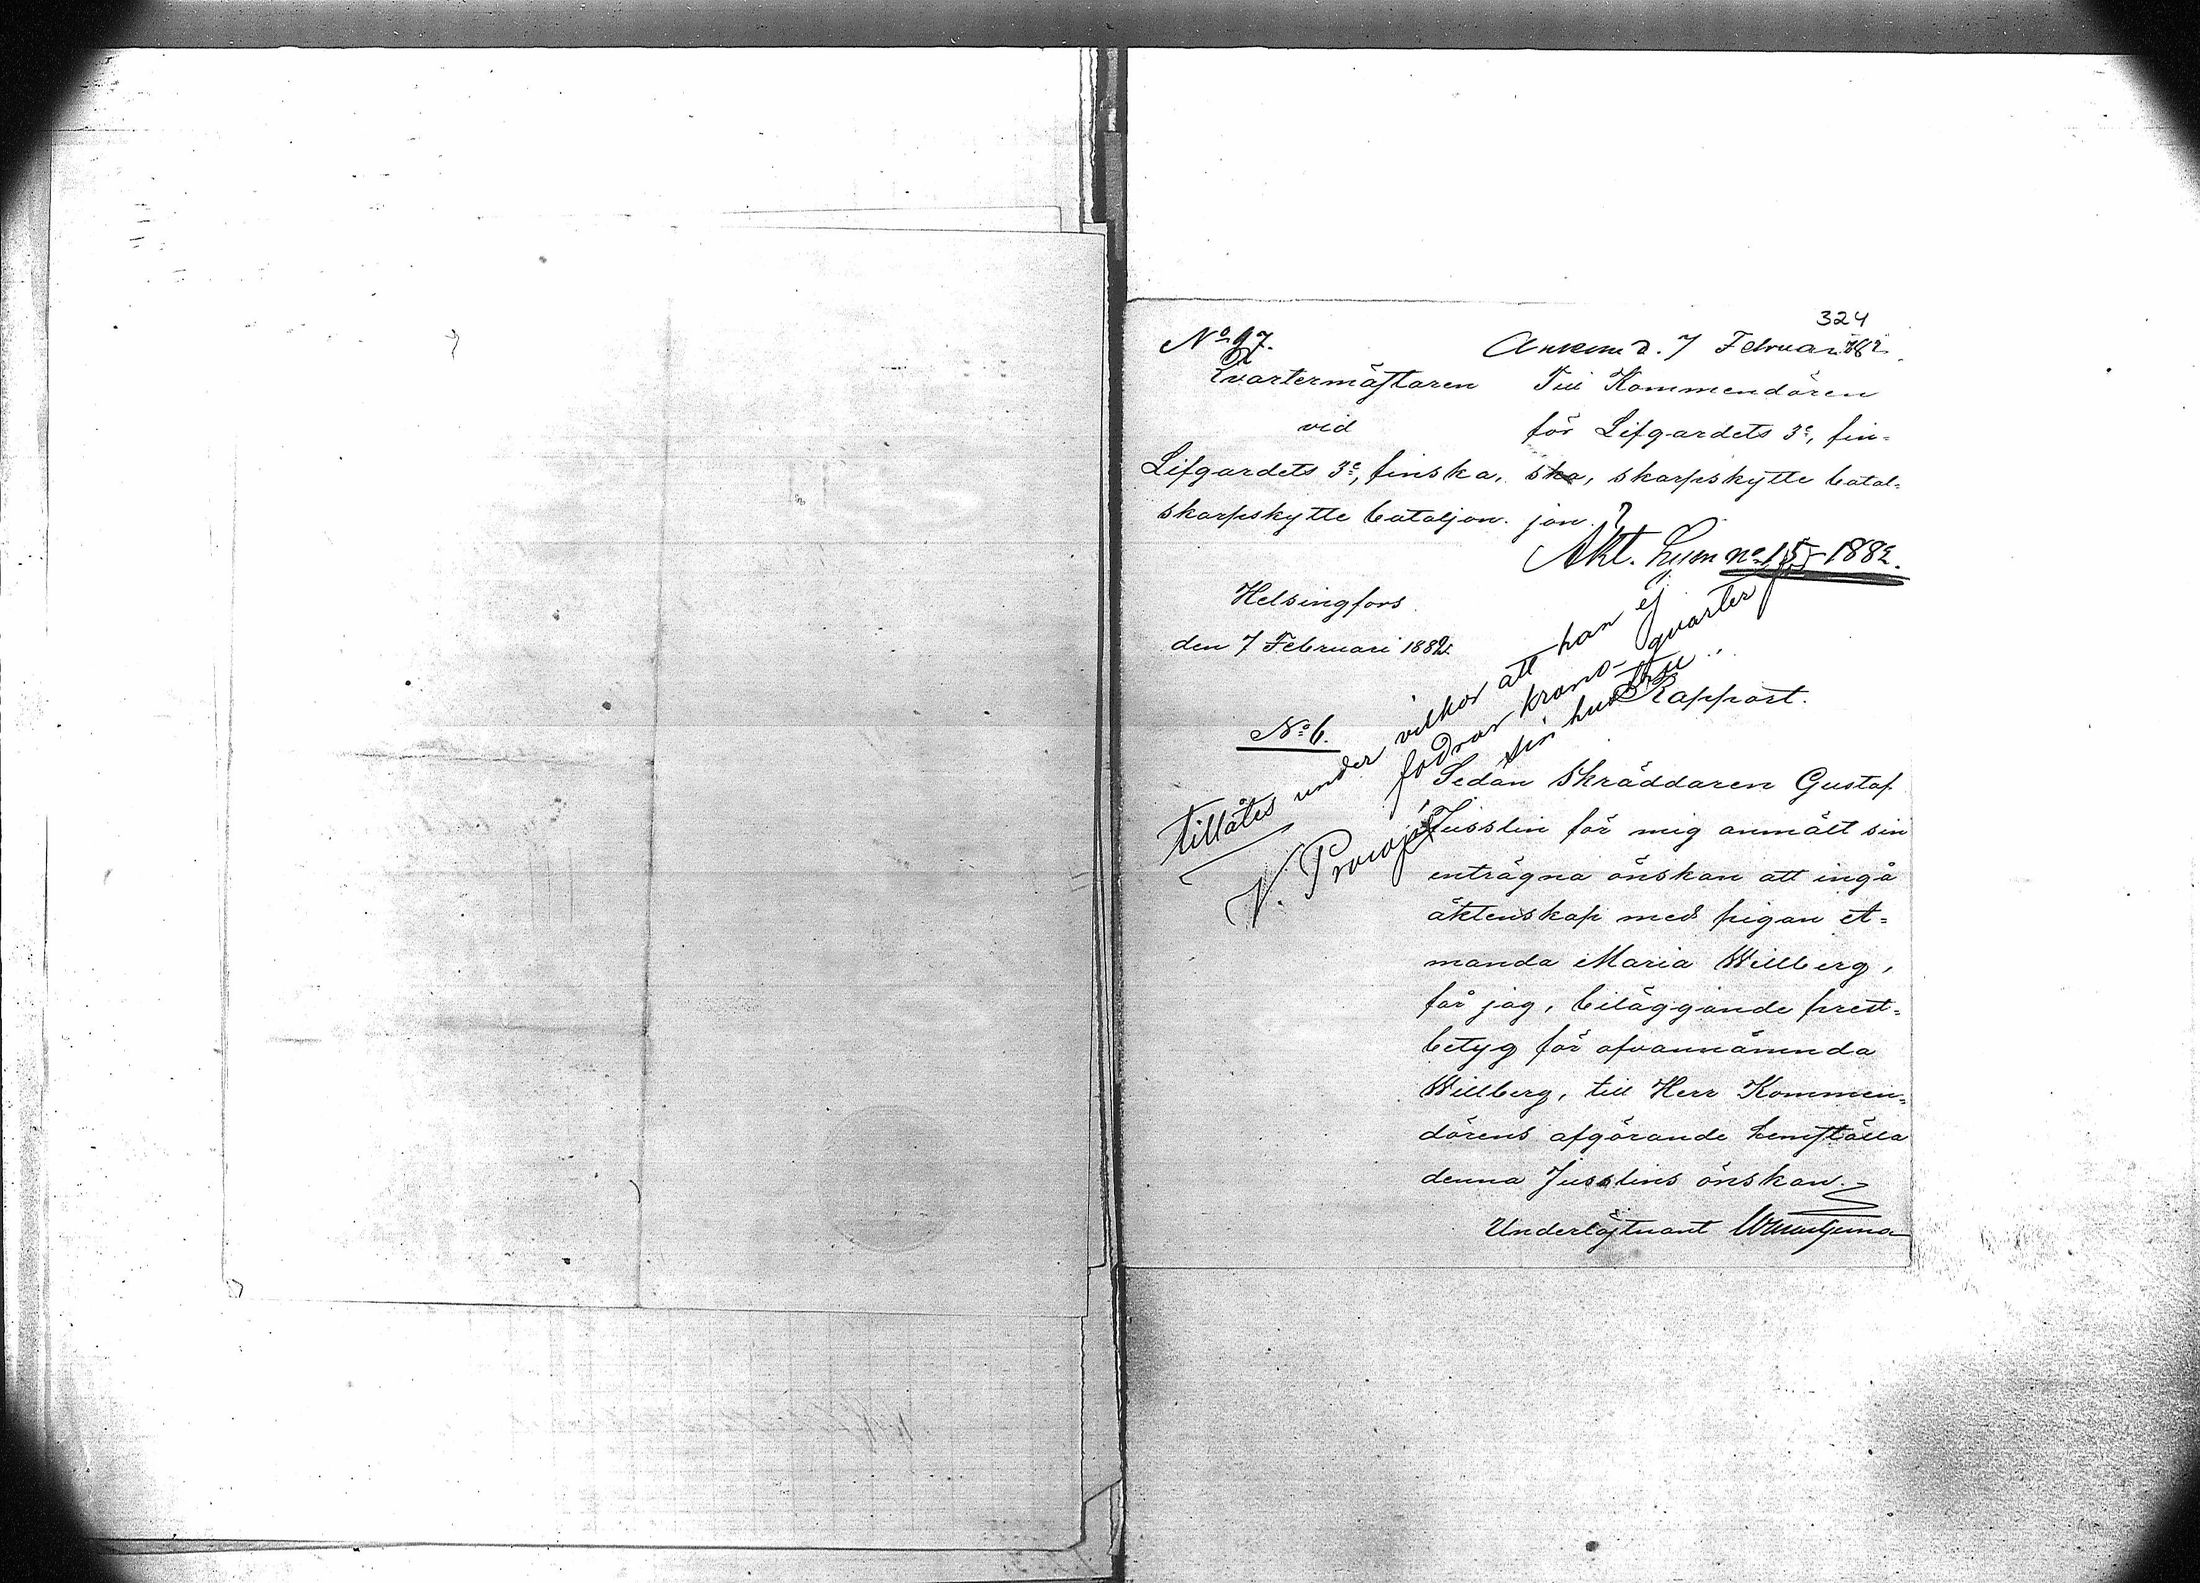 324
No 97.
Ankom d. 7 Februari 1882.
Qvartermästaren
vid
Lifgardets 3e, finska,
skarpskytte bataljon.
Till Kommendören
för Lifgardets 3e, fin-
ska, skarpskytte batal-
jon.
Akt. Lum no 15 - 1882.
Helsingfors
den 7 Februari 1882.
Rapport.
No 6.
tillåtes under vilkor att han ej
fodrar krono-qvarter för
sin hustru.
V. Procopé
Sedan Skräddaren Gustaf
Jusslin för mig anmält sin
enträgna önskan att ingå
äktenskap med pigan A-
manda Maria Willberg,
får jag, biläggande prest-
betyg för ofvannämnda
Willberg, till Herr Kommen-
dörens afgörande hemställa
denna Jusslins önskan.
Underlöjtnant